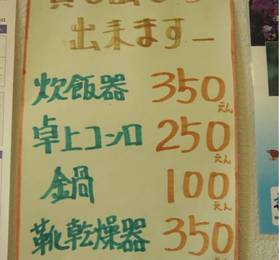 貸し出しも
出来ますー
炊飯器 350えん
卓上コンロ 250えん
鍋 100えん
靴乾燥器 350えん